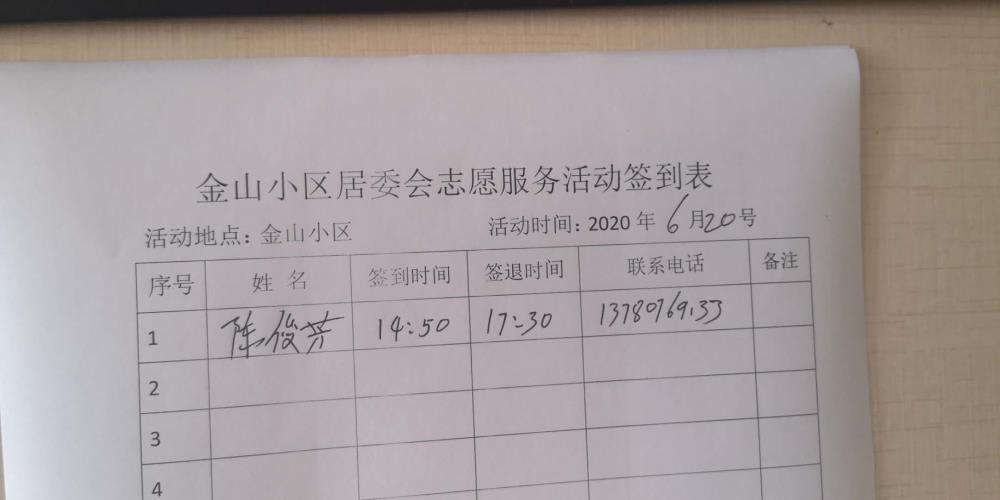 金山小区居委会志愿服务活动签到表
活动地点: 金山小区 活动时间: 2020 年 6 月 20 号
序号 姓 名 签到时间 签退时间 联系电话 备注
1 陈俊芳 14:50 17:30
2
3
4